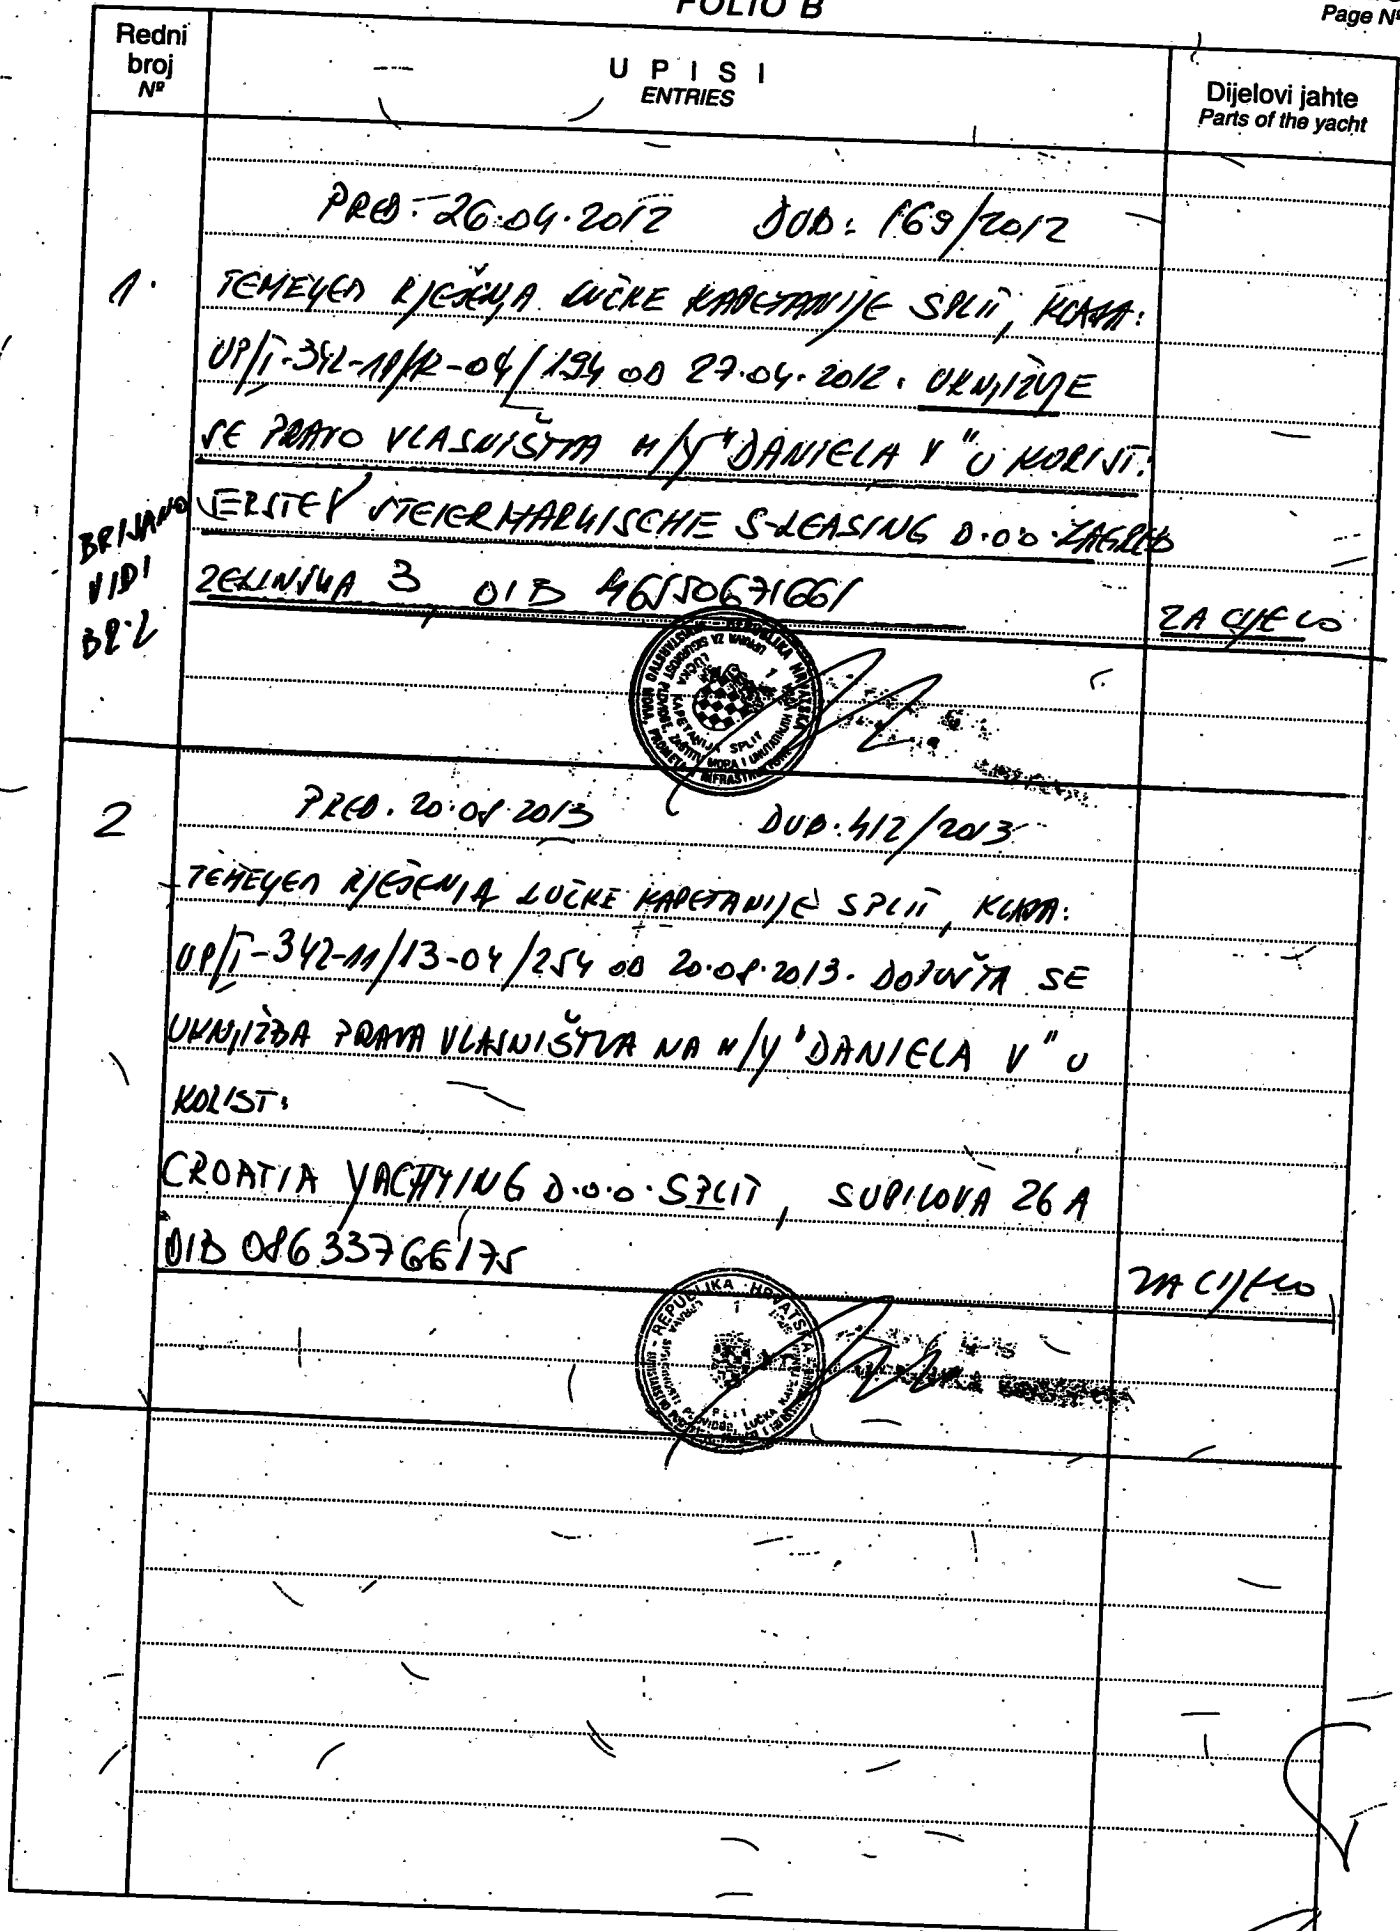 FOLIO B
Page Nº
Redni broj Nº
UPISI
ENTRIES
Dijelovi jahte
Parts of the yacht
PRED. 26.04.2012 DUB: 169/2012
1.
TEMELJEM RJEŠENJA LUČKE KAPETANIJE SPLIT, KLASA:
UP/I-342-11/12-04/194 OD 27.04.2012. UKNJIŽUJE
SE PRAVO VLASNIŠTVA M/Y "DANIELA V" U KORIST:
ERSTE STEIERMARKISCHE S-LEASING D.O.O. ZAGREB
ZELINSKA 3, OIB 46550671661
ZA CIJELO
BRISANO
VIDI
BR. 2
REPUBLIKA HRVATSKA
LUČKA KAPETANIJA SPLIT
2
PRED. 20.08.2013 DUB. 412/2013
TEMELJEM RJEŠENJA LUČKE KAPETANIJE SPLIT, KLASA:
UP/I-342-11/13-04/254 OD 20.08.2013. DOPUŠTA SE
UKNJIŽBA PRAVA VLASNIŠTVA NA M/Y "DANIELA V" U
KORIST:
CROATIA YACHTING D.O.O. SPLIT, SUPILOVA 26 A
OIB 08633766175
ZA CIJELO
REPUBLIKA HRVATSKA